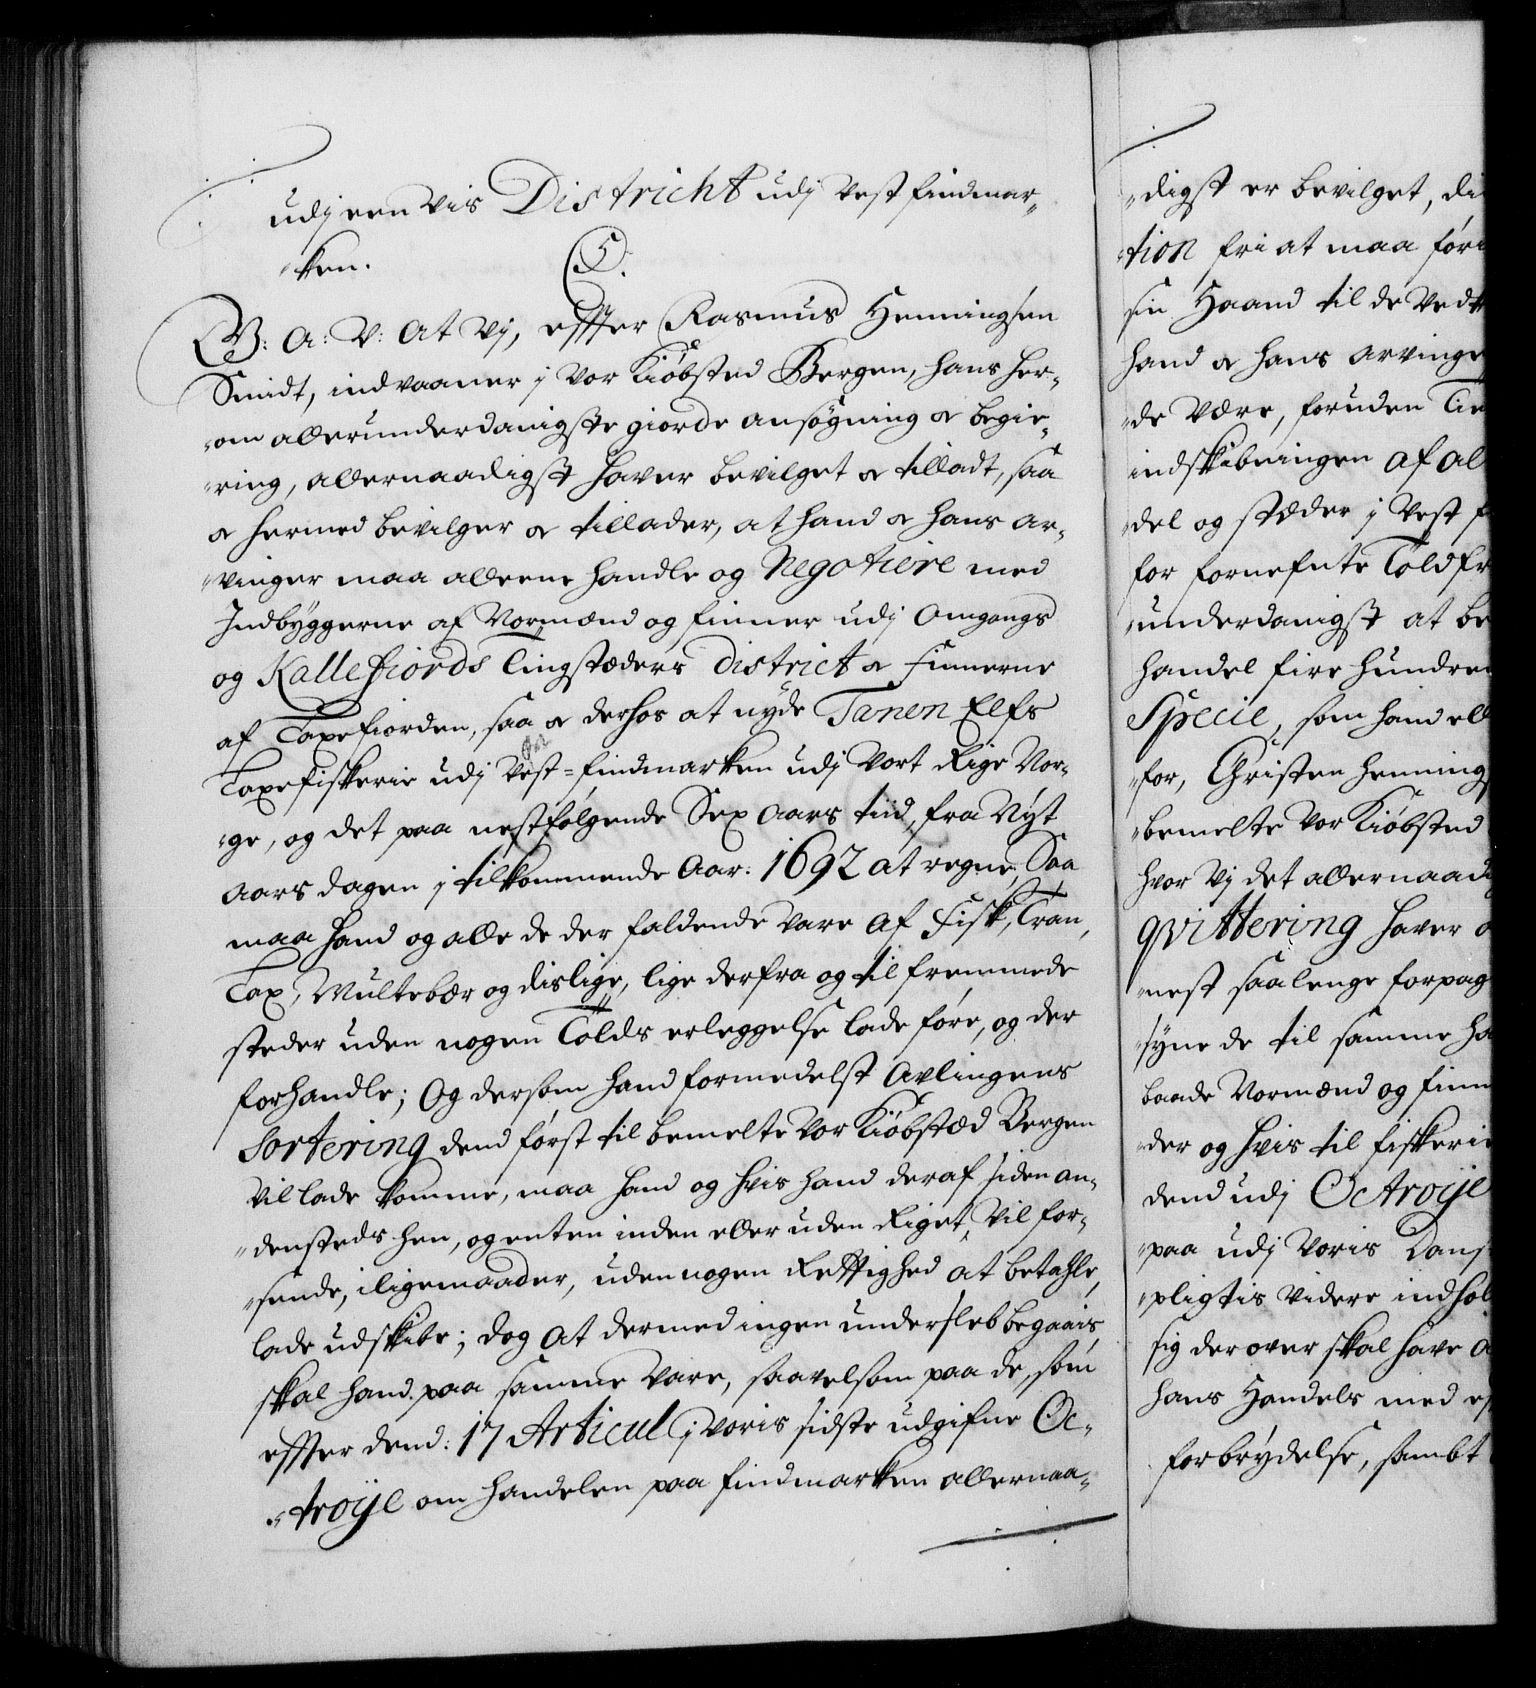 udj een vis Districht udj Vestfindmar„
„ken.
C5.
G: A: V: At Vj, effter Rasmus Henningsen
Smidt, indvaaner j vor Kiøbsted Bergen, hans her„
„om allerunderdanigste giorde ansøgning & begie„
„ring, allernaadigst haver bevilget & tilladt, saa
& hermed bevilger & tillader, at hand & hans ar„
„vinger maa alleene handle og Negotiere med
Indbyggerne af Normænd og finner udj Omgangs
og Kallefiords Tingstæders District & Finnerne
af Laxefiorden, saa & derhos at nyde Tanen Elfs
Laxefiskerie udj Vest=findmarken udj Vort Rige Nor„
„ge, og det paa nestfølgende Sex aars tiid, fra Nyt
aars dagen j tilkommende Aar: 1692 at regne, Saa
maa hand og alle de der faldende vare af Fisk, Tran,
Lax, Multebær og dislige, lige derfra og til fremmede
steder uden nogen Tolds erleggelse lade føre, og der
forhandle; Og dersom hand formedelst Avlingens
Sortering dend først til bemelte vor Kiøbstæd Bergen
vil lade komme, maa hand og hvis hand deraf siden an„
„densteds hen, og enten inden eller uden Riget, vil for„
„sende, iligemaader, uden nogen Rettighed at betahle,
lade udskibe; dog at dermed ingen undersleb begaais,
skal hand paa samme vare, saavelsom paa de, som
effter dend: 17 Articul j voris sidste udgifne Oc„
„troije om handelen paa findmarken allernaa„
„digst er bevilget,
„tion fri at maa føre
sin Haand til de vedt
hand & hans arvinge
„de være, foruden
indskibningen af al
„del og stæder j Vest
for fornefnte Toldfr
„underdanigst at be
handel fire hundre
Specie, som hand ell
„for, Christen Henning
„bemelte vor Kiøbsted
hvor vj det allernaad
qvittering haver
„nest saalenge forpag
„syne de til samme ha
baade Normænd og finn
„der og hvis til fiskeri
dend udj Octroije
„paa udj voris Dans
„pligtis videre indhol
sig derover skal have
hans Handels med
forbrydelse, sambt